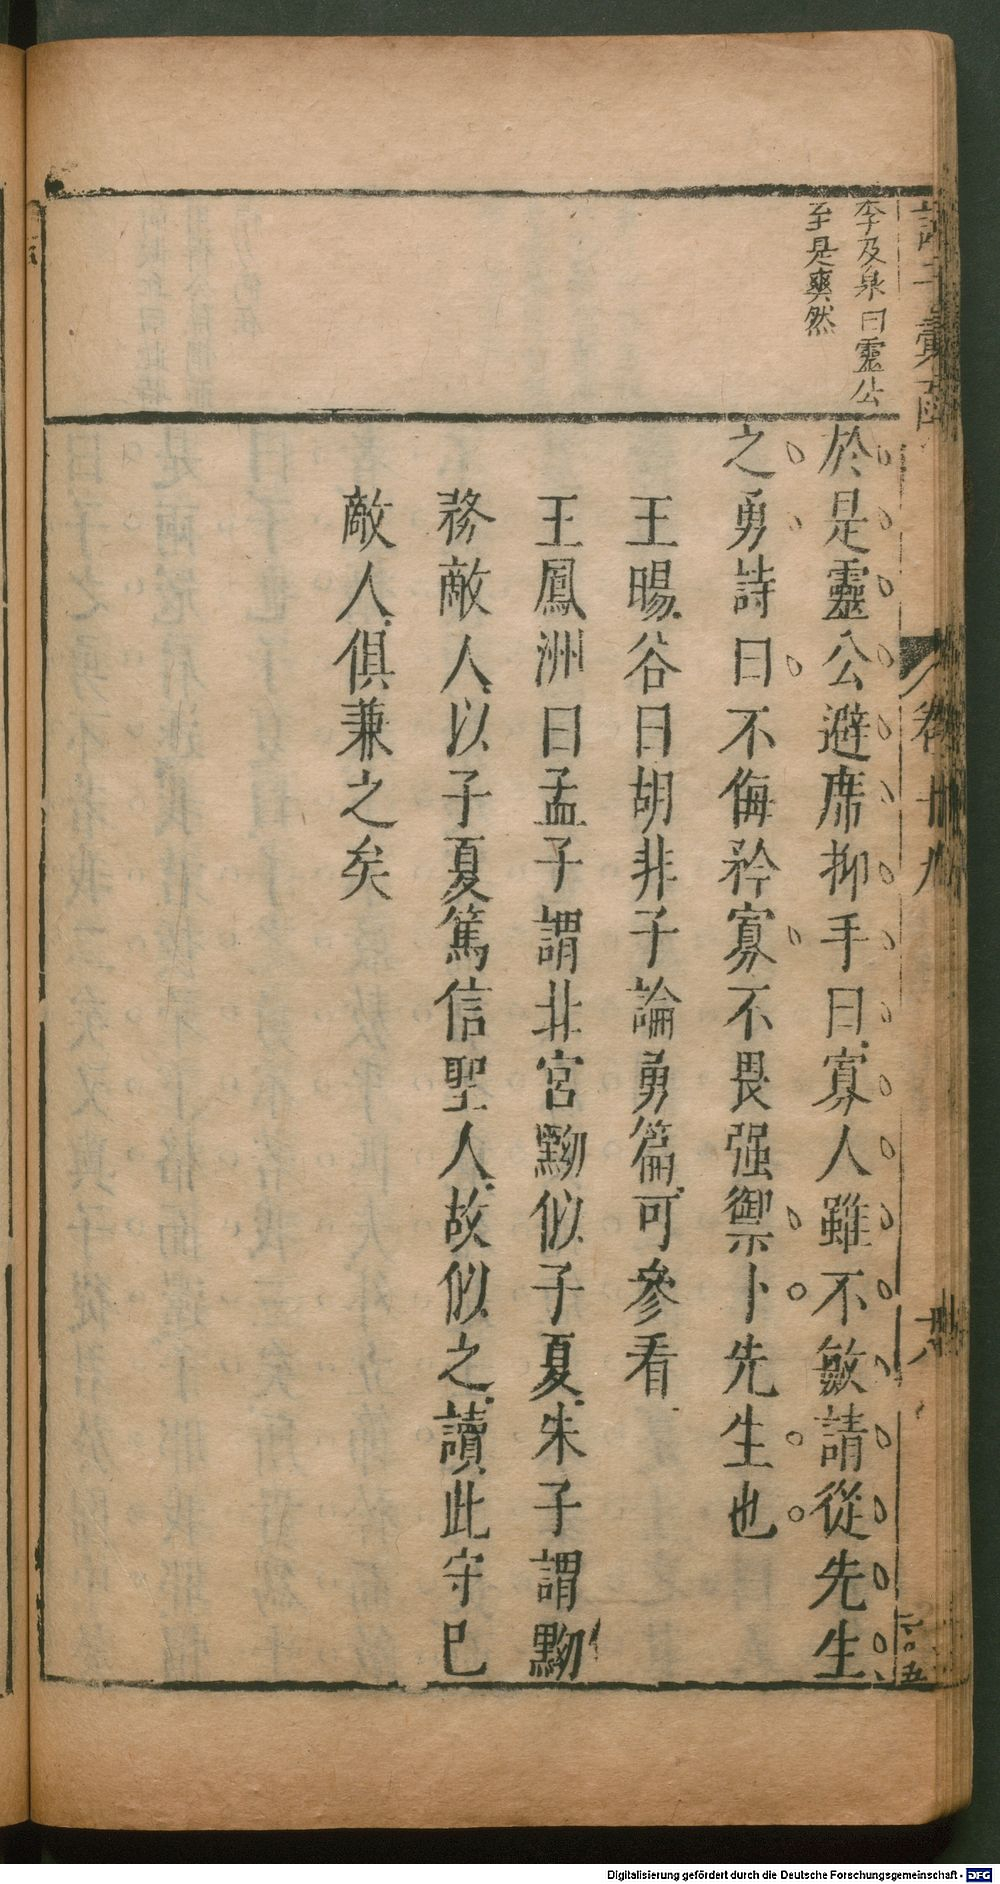 李及泉曰靈公
至是爽然
於是靈公避席抑手曰寡人雖不敏請從先生
之勇詩曰不侮矜寡不畏强禦卜先生也
王暘谷曰胡非子論勇篇可參看
王鳳洲曰孟子謂北宮黝似子夏朱子謂黝
務敵人以子夏篤信聖人故似之讀此守已
敵人俱兼之矣
卷十九
Digitalisierung gefördert durch die Deutsche Forschungsgemeinschaft - DFG